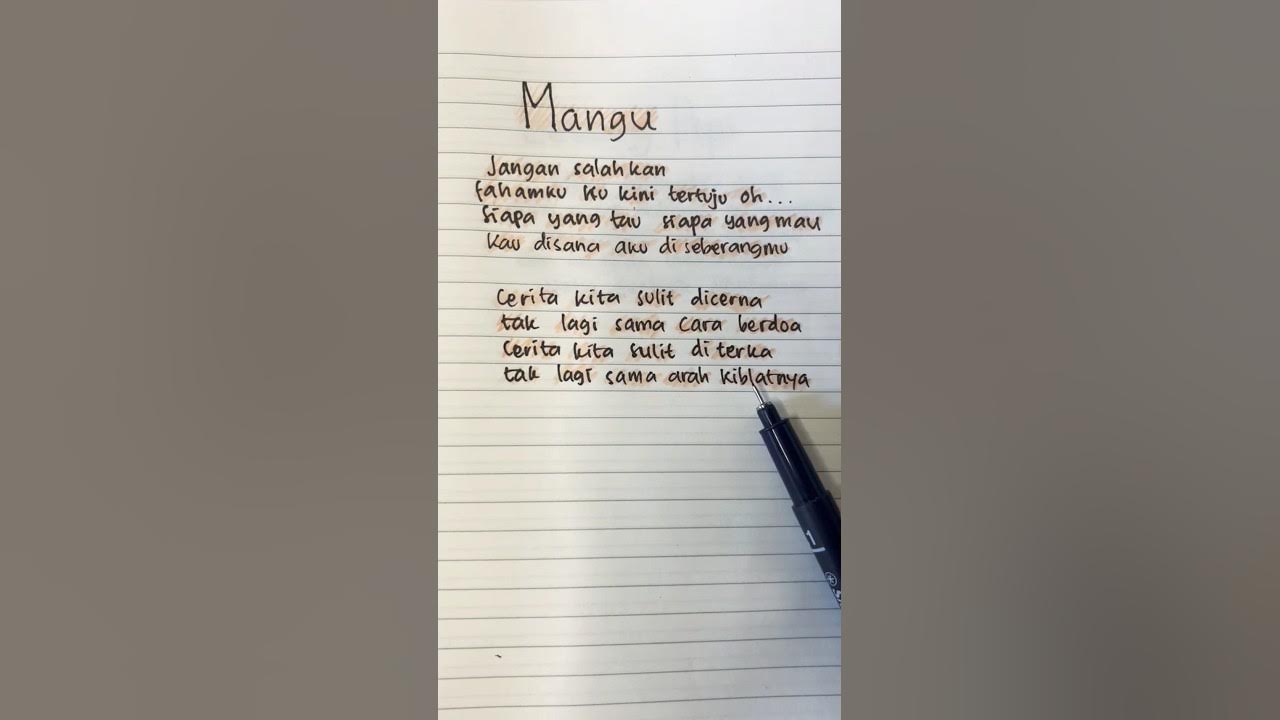 Mangu
Jangan salahkan
fahamku ku kini tertuju oh...
siapa yang tau siapa yang mau
kau disana aku di seberangmu
Cerita kita sulit dicerna
tak lagi sama cara berdoa
Cerita kita sulit di terka
tak lagi sama arah kiblatnya
1